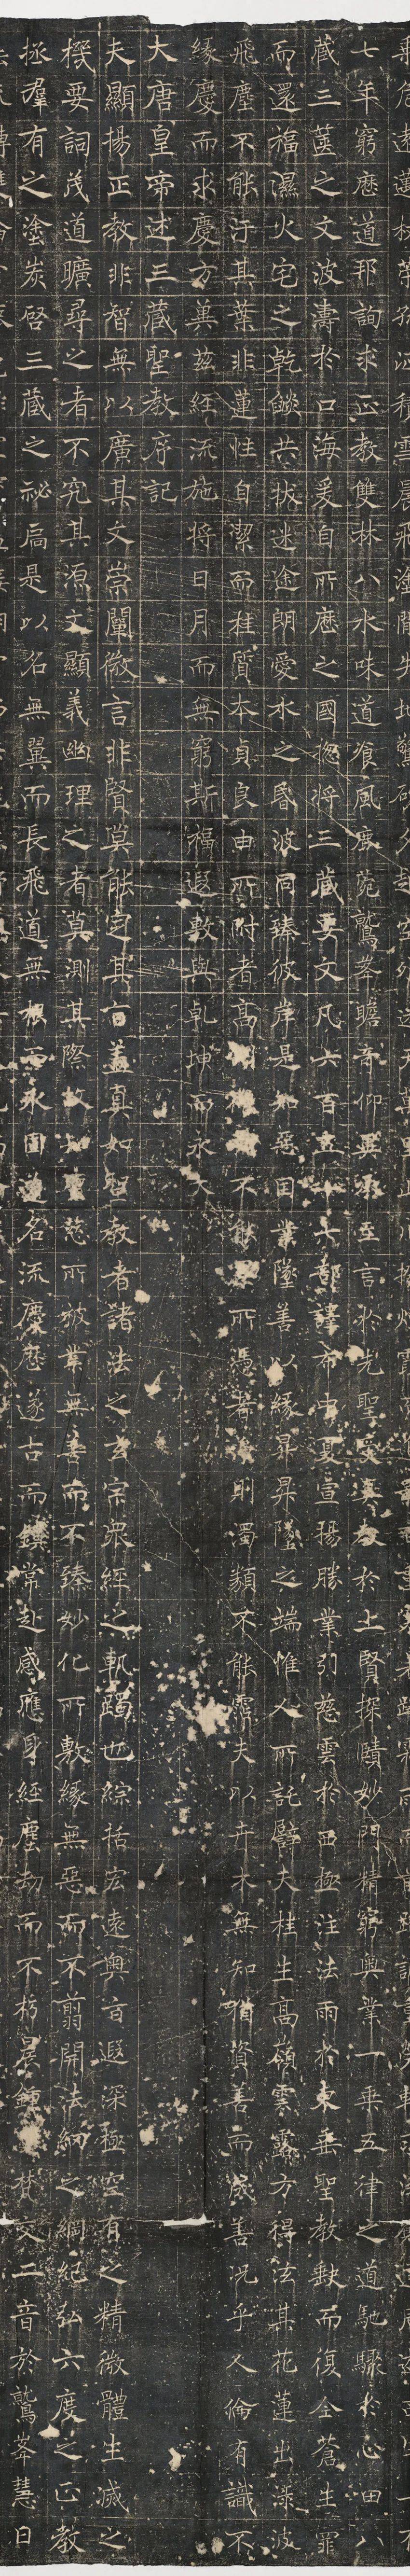 七年窮歷道邦詢求正教雙林八水味道飡風鹿菀鷲峯瞻奇仰異承至言於先聖受真教於上賢探賾妙門精窮奧業一乘五律之道馳驟於心田八
藏三篋之文波濤於口海爰自所歷之國揔將三藏要文凡六百五十七部譯布中夏宣揚勝業引慈雲於西極注法雨於東垂聖教缺而復全蒼生罪
而還福濕火宅之乾燄共拔迷途朗愛水之昏波同臻彼岸是知惡因業墜善以緣昇昇墜之端惟人所託譬夫桂生高嶺雲露方得泫其花蓮出淥波
飛塵不能汙其葉非蓮性自潔而桂質本貞良由所附者高則微物不能累所憑者淨則濁類不能霑夫以卉木無知猶資善而成善況乎人倫有識不
緣慶而求慶方冀茲經流施將日月而無窮斯福遐敷與乾坤而永大
大唐皇帝述三藏聖教序記
夫顯揚正教非智無以廣其文崇闡微言非賢莫能定其旨蓋真如聖教者諸法之玄宗眾經之軌躅也綜括宏遠奧旨遐深極空有之精微體生滅之
機要詞茂道曠尋之者不究其源文顯義幽理之者莫測其際故知聖慈所被業無善而不臻妙化所敷緣無惡而不翦開法網之綱紀弘六度之正教
拯羣有之塗炭啓三藏之祕扃是以名無翼而長飛道無根而永固道名流慶歷遂古而鎮常赴感應身經塵劫而不朽晨鐘夕梵交二音於鷲峯慧日